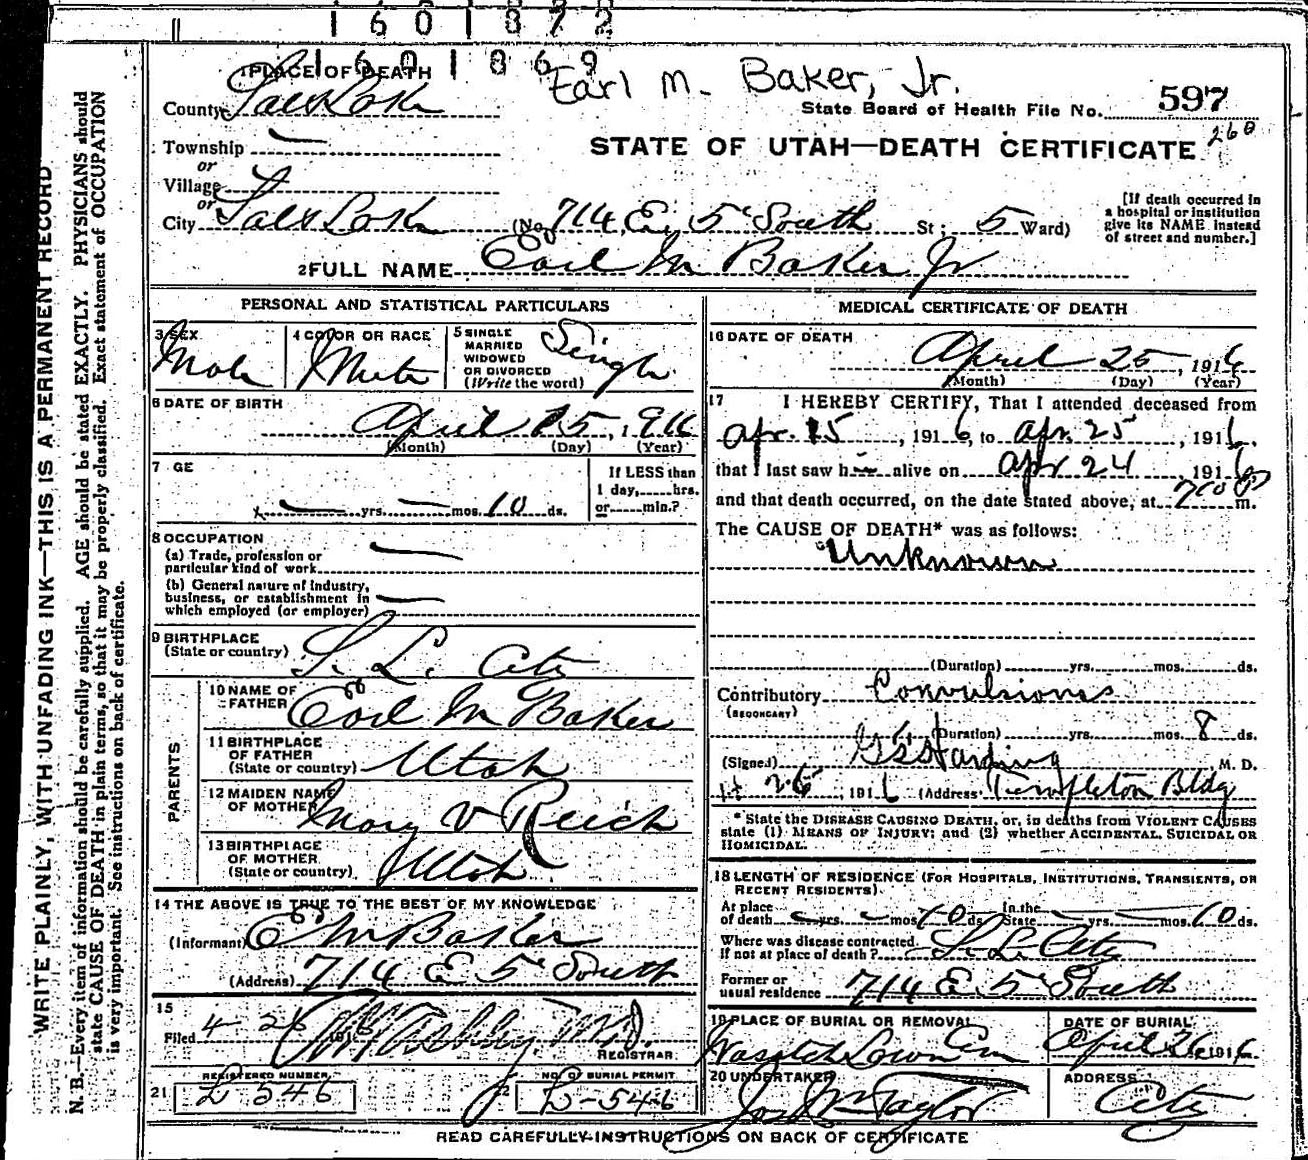 1601872
1601869
PLACE OF DEATH
Earl M. Baker, Jr.
County Salt Lake
State Board of Health File No. 597
260
Township —
STATE OF UTAH—DEATH CERTIFICATE
or
Village —
or
City Salt Lake (No. 714 E. 5" South St; 5 Ward)
[If death occurred in
a hospital or institution
give its NAME instead
of street and number.]
2 FULL NAME Earl M Baker Jr
PERSONAL AND STATISTICAL PARTICULARS
3 SEX
Male
4 COLOR OR RACE
White
5 SINGLE
MARRIED
WIDOWED
OR DIVORCED
(Write the word)
Single
6 DATE OF BIRTH
April 15, 1916
(Month) (Day) (Year)
7 GE
— yrs. — mos. 10 ds.
If LESS than
1 day, hrs.
or min.?
8 OCCUPATION
(a) Trade, profession or
particular kind of work —
(b) General nature of industry,
business, or establishment in
which employed (or employer) —
9 BIRTHPLACE
(State or country) S. L. City
PARENTS
10 NAME OF
FATHER Earl M Baker
11 BIRTHPLACE
OF FATHER
(State or country) Utah
12 MAIDEN NAME
OF MOTHER Mary V Reich
13 BIRTHPLACE
OF MOTHER
(State or country) Utah
14 THE ABOVE IS TRUE TO THE BEST OF MY KNOWLEDGE
(Informant) E M Baker
(Address) 714 E 5" South
15
Filed 4 26 1916 M.D.
REGISTRAR
21 REGISTERED NUMBER
L 546
NO. OF BURIAL PERMIT
L-546
MEDICAL CERTIFICATE OF DEATH
16 DATE OF DEATH
April 25, 1916
(Month) (Day) (Year)
17 I HEREBY CERTIFY, That I attended deceased from
apr. 15, 1916, to apr. 25, 1916.
that I last saw him alive on apr 24 1916
and that death occurred, on the date stated above, at m.
The CAUSE OF DEATH* was as follows:
Unknown
(Duration) yrs. mos. ds.
Contributory Convulsions
(SECONDARY)
(Duration) yrs. mos. 8 ds.
(Signed) Harding M. D.
26, 1916 (Address) Templeton Bldg
* State the DISEASE CAUSING DEATH, or, in deaths from VIOLENT CAUSES
state (1) MEANS OF INJURY; and (2) whether ACCIDENTAL, SUICIDAL OR
HOMICIDAL.
18 LENGTH OF RESIDENCE (FOR HOSPITALS, INSTITUTIONS, TRANSIENTS, OR
RECENT RESIDENTS).
At place
of death — yrs. — mos. 10 ds. In the
State — yrs. — mos. 10 ds.
Where was disease contracted
If not at place of death? S. L. City
Former or
usual residence 714 E 5" South
19 PLACE OF BURIAL OR REMOVAL
Wasatch Lawn Cem
DATE OF BURIAL
April 26 1916
20 UNDERTAKER
Jos Wm Taylor
ADDRESS
City
READ CAREFULLY INSTRUCTIONS ON BACK OF CERTIFICATE
WRITE PLAINLY, WITH UNFADING INK—THIS IS A PERMANENT RECORD
N. B.—Every item of information should be carefully supplied. AGE should be stated EXACTLY. PHYSICIANS should
state CAUSE OF DEATH in plain terms, so that it may be properly classified. Exact statement of OCCUPATION
is very important. See instructions on back of certificate.